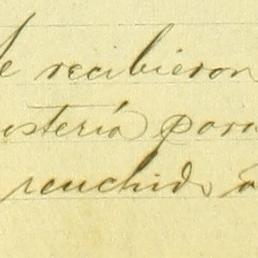 Se recibieron
istería para
renchido a